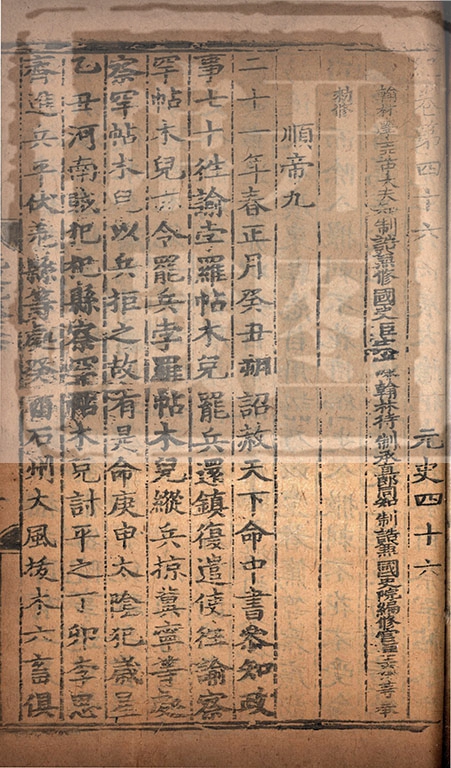 本紀第四十六 元史四十六
翰林學士亞中大夫知制誥兼修國史臣宋濂翰林待制承直郎同知制誥兼國史院編修官臣王禕等奉
勑修
順帝九
二十一年春正月癸丑朔詔赦天下命中書參知政
事七十徃諭孛羅帖木兒罷兵還鎮復遣使徃諭察
罕帖木兒亦令罷兵孛羅帖木兒縱兵掠冀寧等處
察罕帖木兒以兵拒之故有是命庚申太陰犯歲星
乙丑河南賊犯杞縣察罕帖木兒討平之丁卯李思
齊進兵平伏羗縣等處癸酉石州大風拔木六畜俱